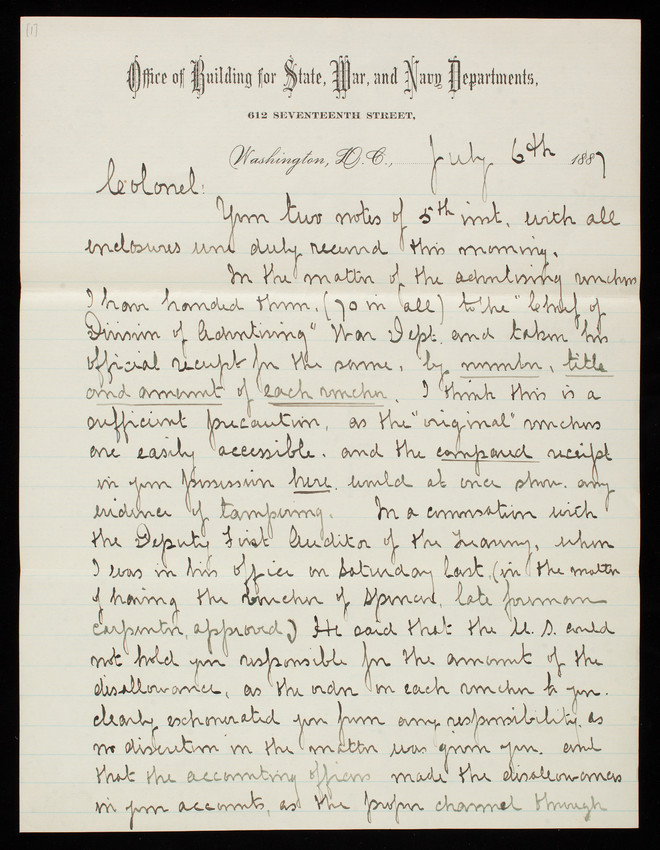 [1]
Office of Building for State, War, and Navy Departments,
612 SEVENTEENTH STREET,
Washington, D.C., July 6th 1887
Colonel:
Your two notes of 5th inst. with all
enclosures were duly received this morning.
In the matter of the advertising vouchers
I have handed them, (70 in all) to the "Chief of
Division of Advertising" War Dept. and taken his
official receipt for the same, by number, title
and amount of each voucher. I think this is a
sufficient precaution, as the "original" vouchers
are easily accessible. and the compared receipt
in your possession here would at once show any
evidence of tampering. In a conversation with
the Deputy First Auditor of the Treasury, when
I was in his office on Saturday last, (in the matter
of having the voucher of Spencer, late foreman
carpenter, approved,) He said that the U.S. could
not hold you responsible for the amount of the
disallowance, as the order on each voucher to you.
clearly exhonorated you from any responsibility, as
no discretion in the matter was given you. and
that the accounting officers made the disallowances
in your accounts, as the proper channel through